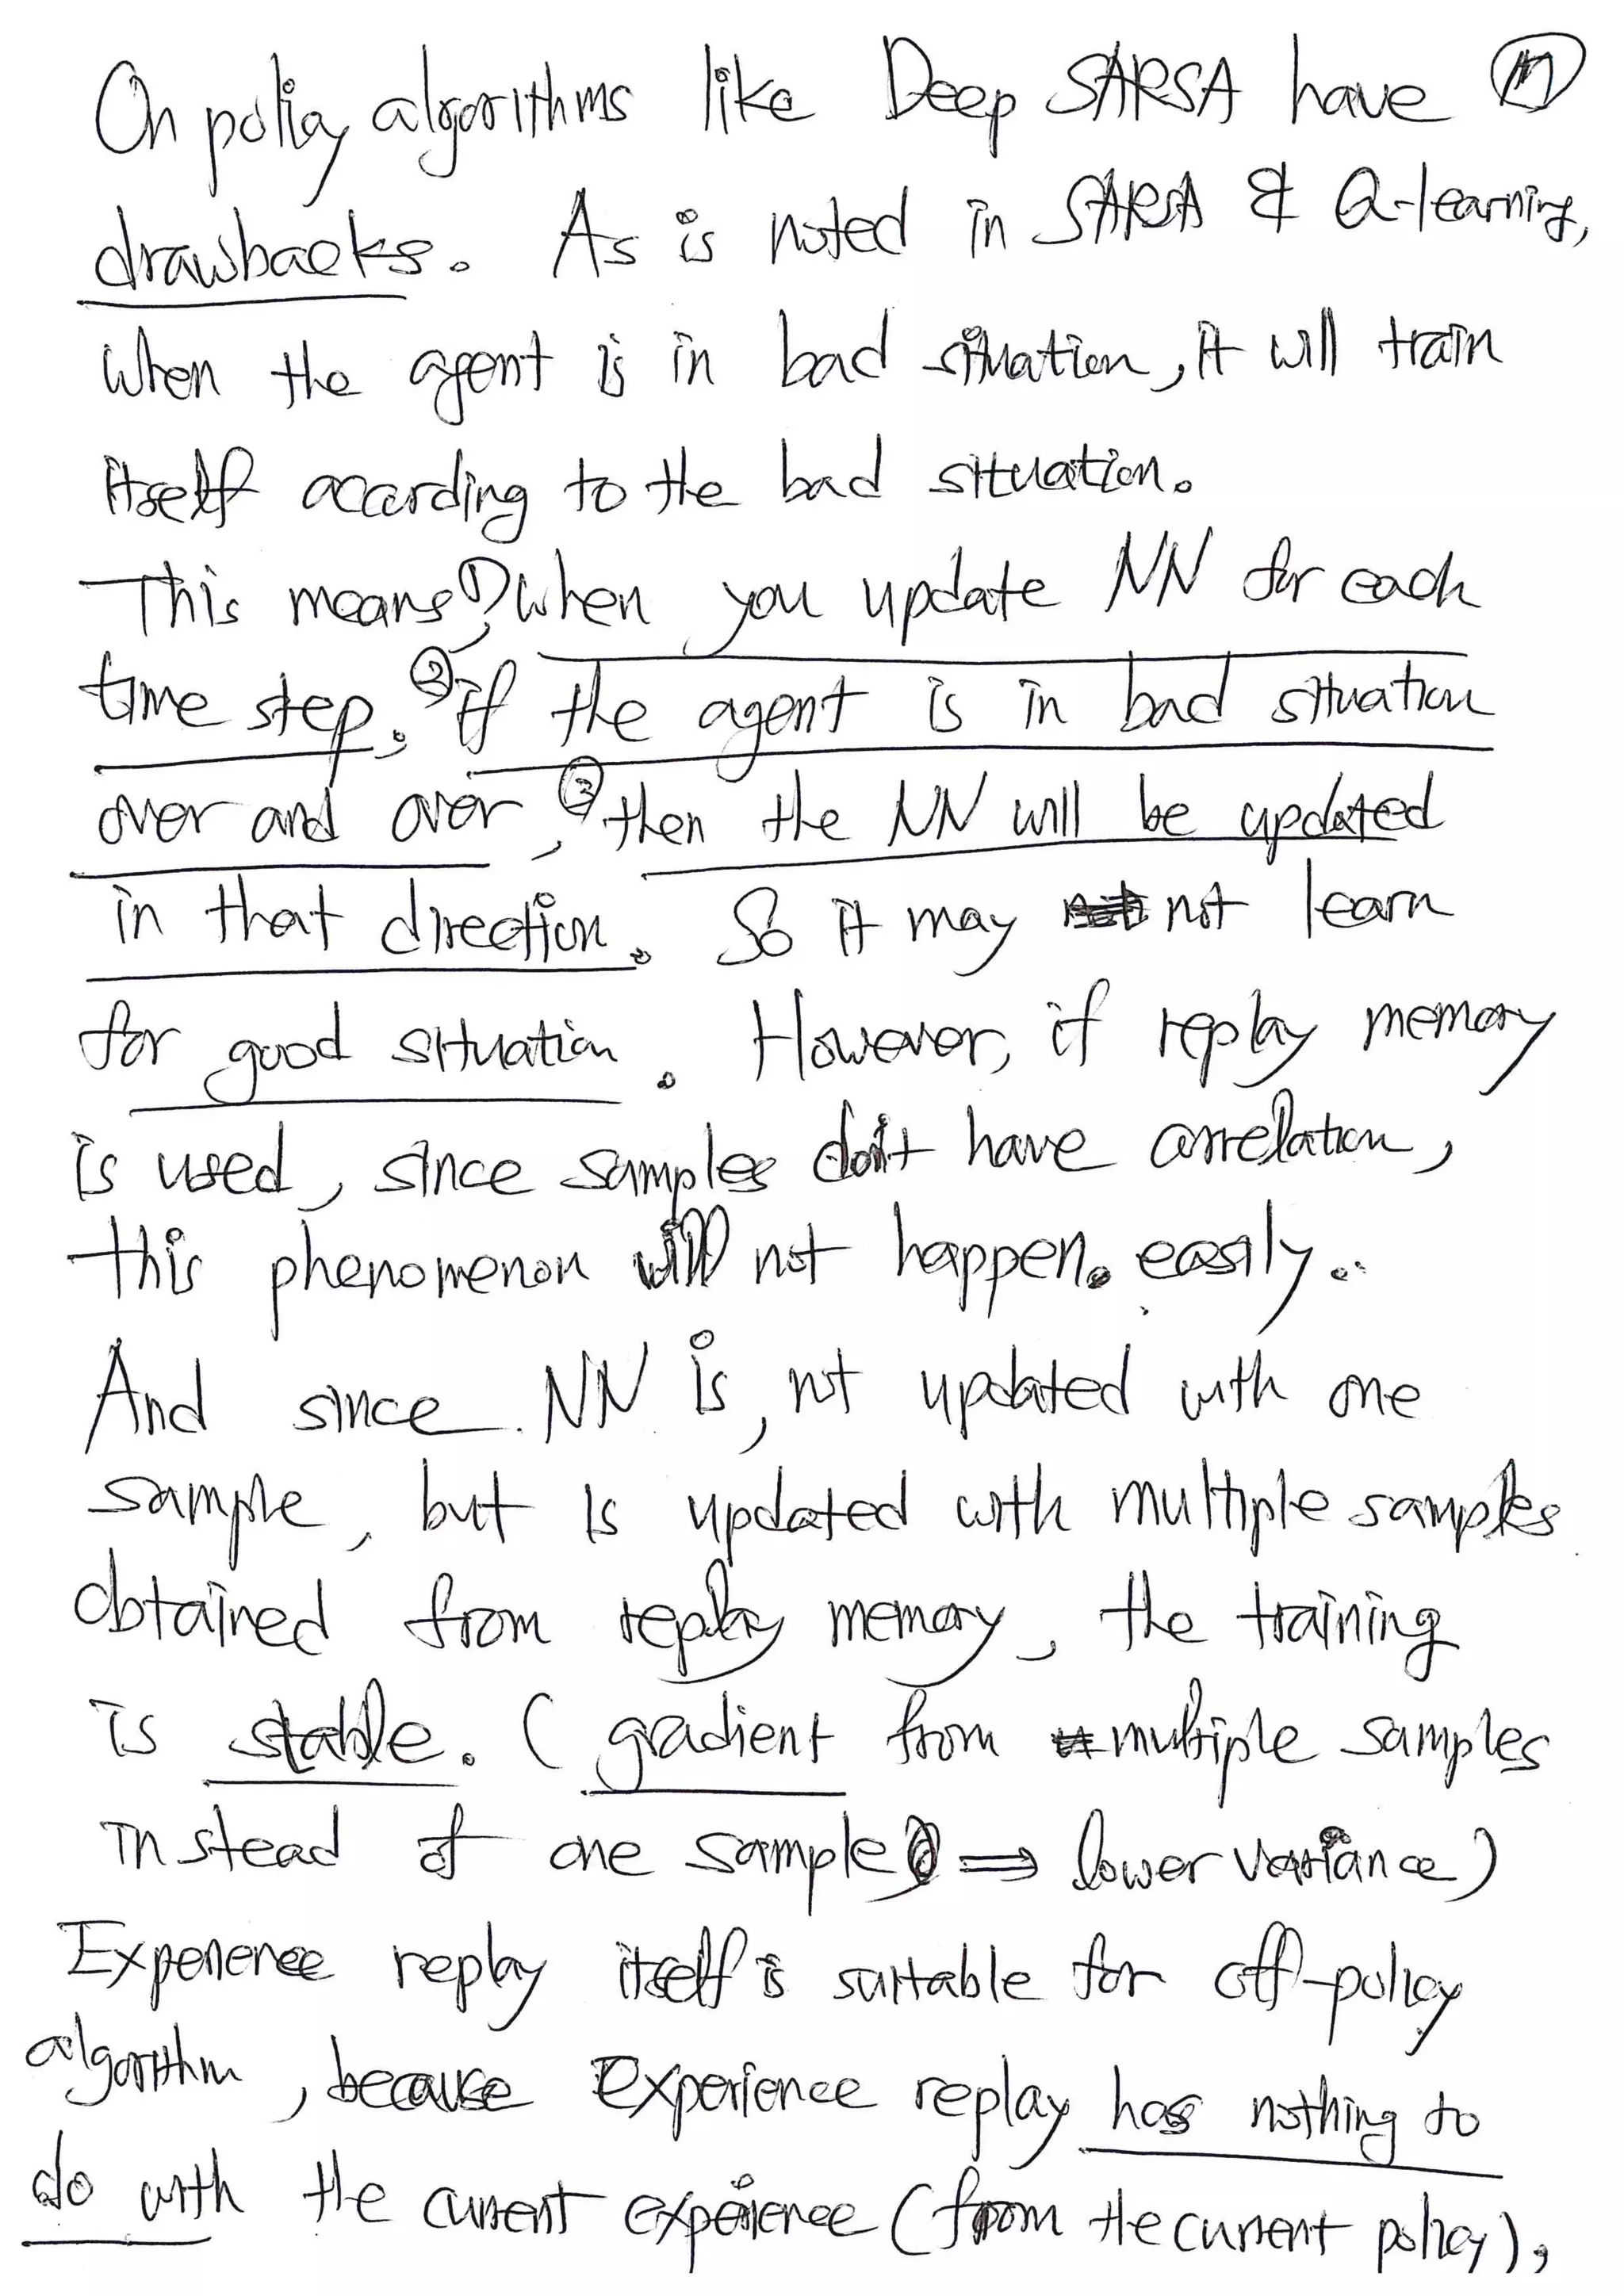 On policy algorithms like Deep SARSA have
drawbacks. As is noted in SARSA & Q-learning,
when the agent is in bad situation, it will train
itself according to the bad situation.
This means ① when you update NN for each
time step, ② if the agent is in bad situation
over and over, ③ then the NN will be updated
in that direction. So it may not learn
for good situation. However, if replay memory
is used, since samples don't have correlation,
this phenomenon will not happen. easily..
And since NN is, not updated with one
sample, but is updated with multiple samples
obtained from replay memory, the training
is stable. (gradient from multiple samples
instead of one sample ⇒ lower variance)
Experience replay itself is suitable for off-policy
algorithm, because experience replay has nothing to
do with the current experience (from the current policy),